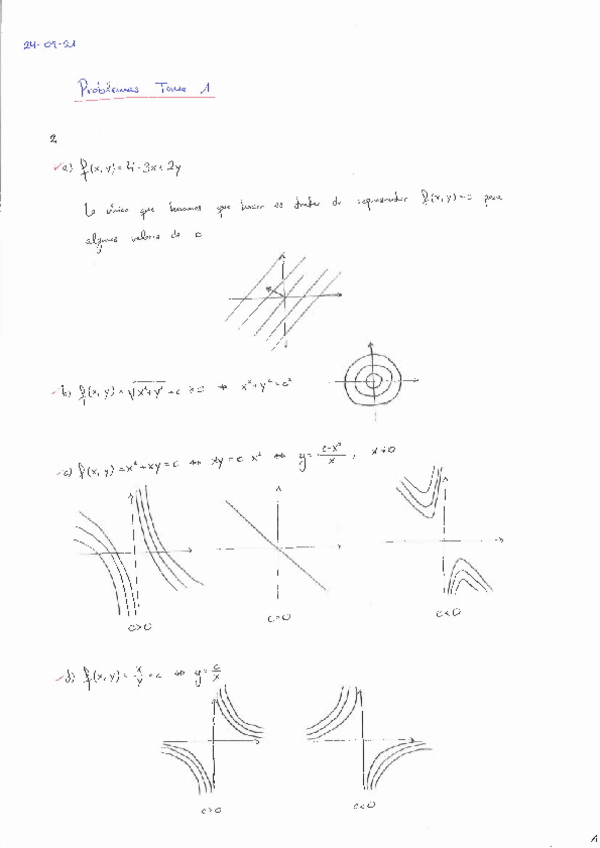 24-09-21
Problemas Tema 1
2
a) f(x, y) = 4 - 3x + 2y
Lo único que tenemos que hacer es tratar de representar f(x, y) = c para
algunos valores de c
b) f(x, y) = √x²+y² = c ≥ 0 ⇔ x² + y² = c²
c) f(x, y) = x² + xy = c ⇔ xy = c - x² ⇔ y = (c-x²)/x , x ≠ 0
c>0 c=0 c<0
d) f(x, y) = x/y = c ⇔ y = c/x
c>0 c<0
1